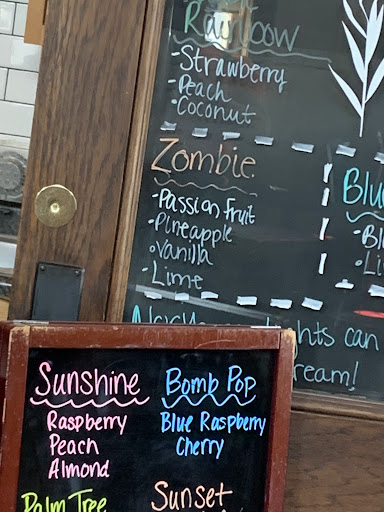 Rainbow
-Strawberry
-Peach
-Coconut
Zombie
-Passion Fruit
-Pineapple
-Vanilla
-Lime
Blu
-Bl
-Li
hts can
ream!
Sunshine
Raspberry
Peach
Almond
Bomb Pop
Blue Raspberry
Cherry
Palm Tree
Sunset